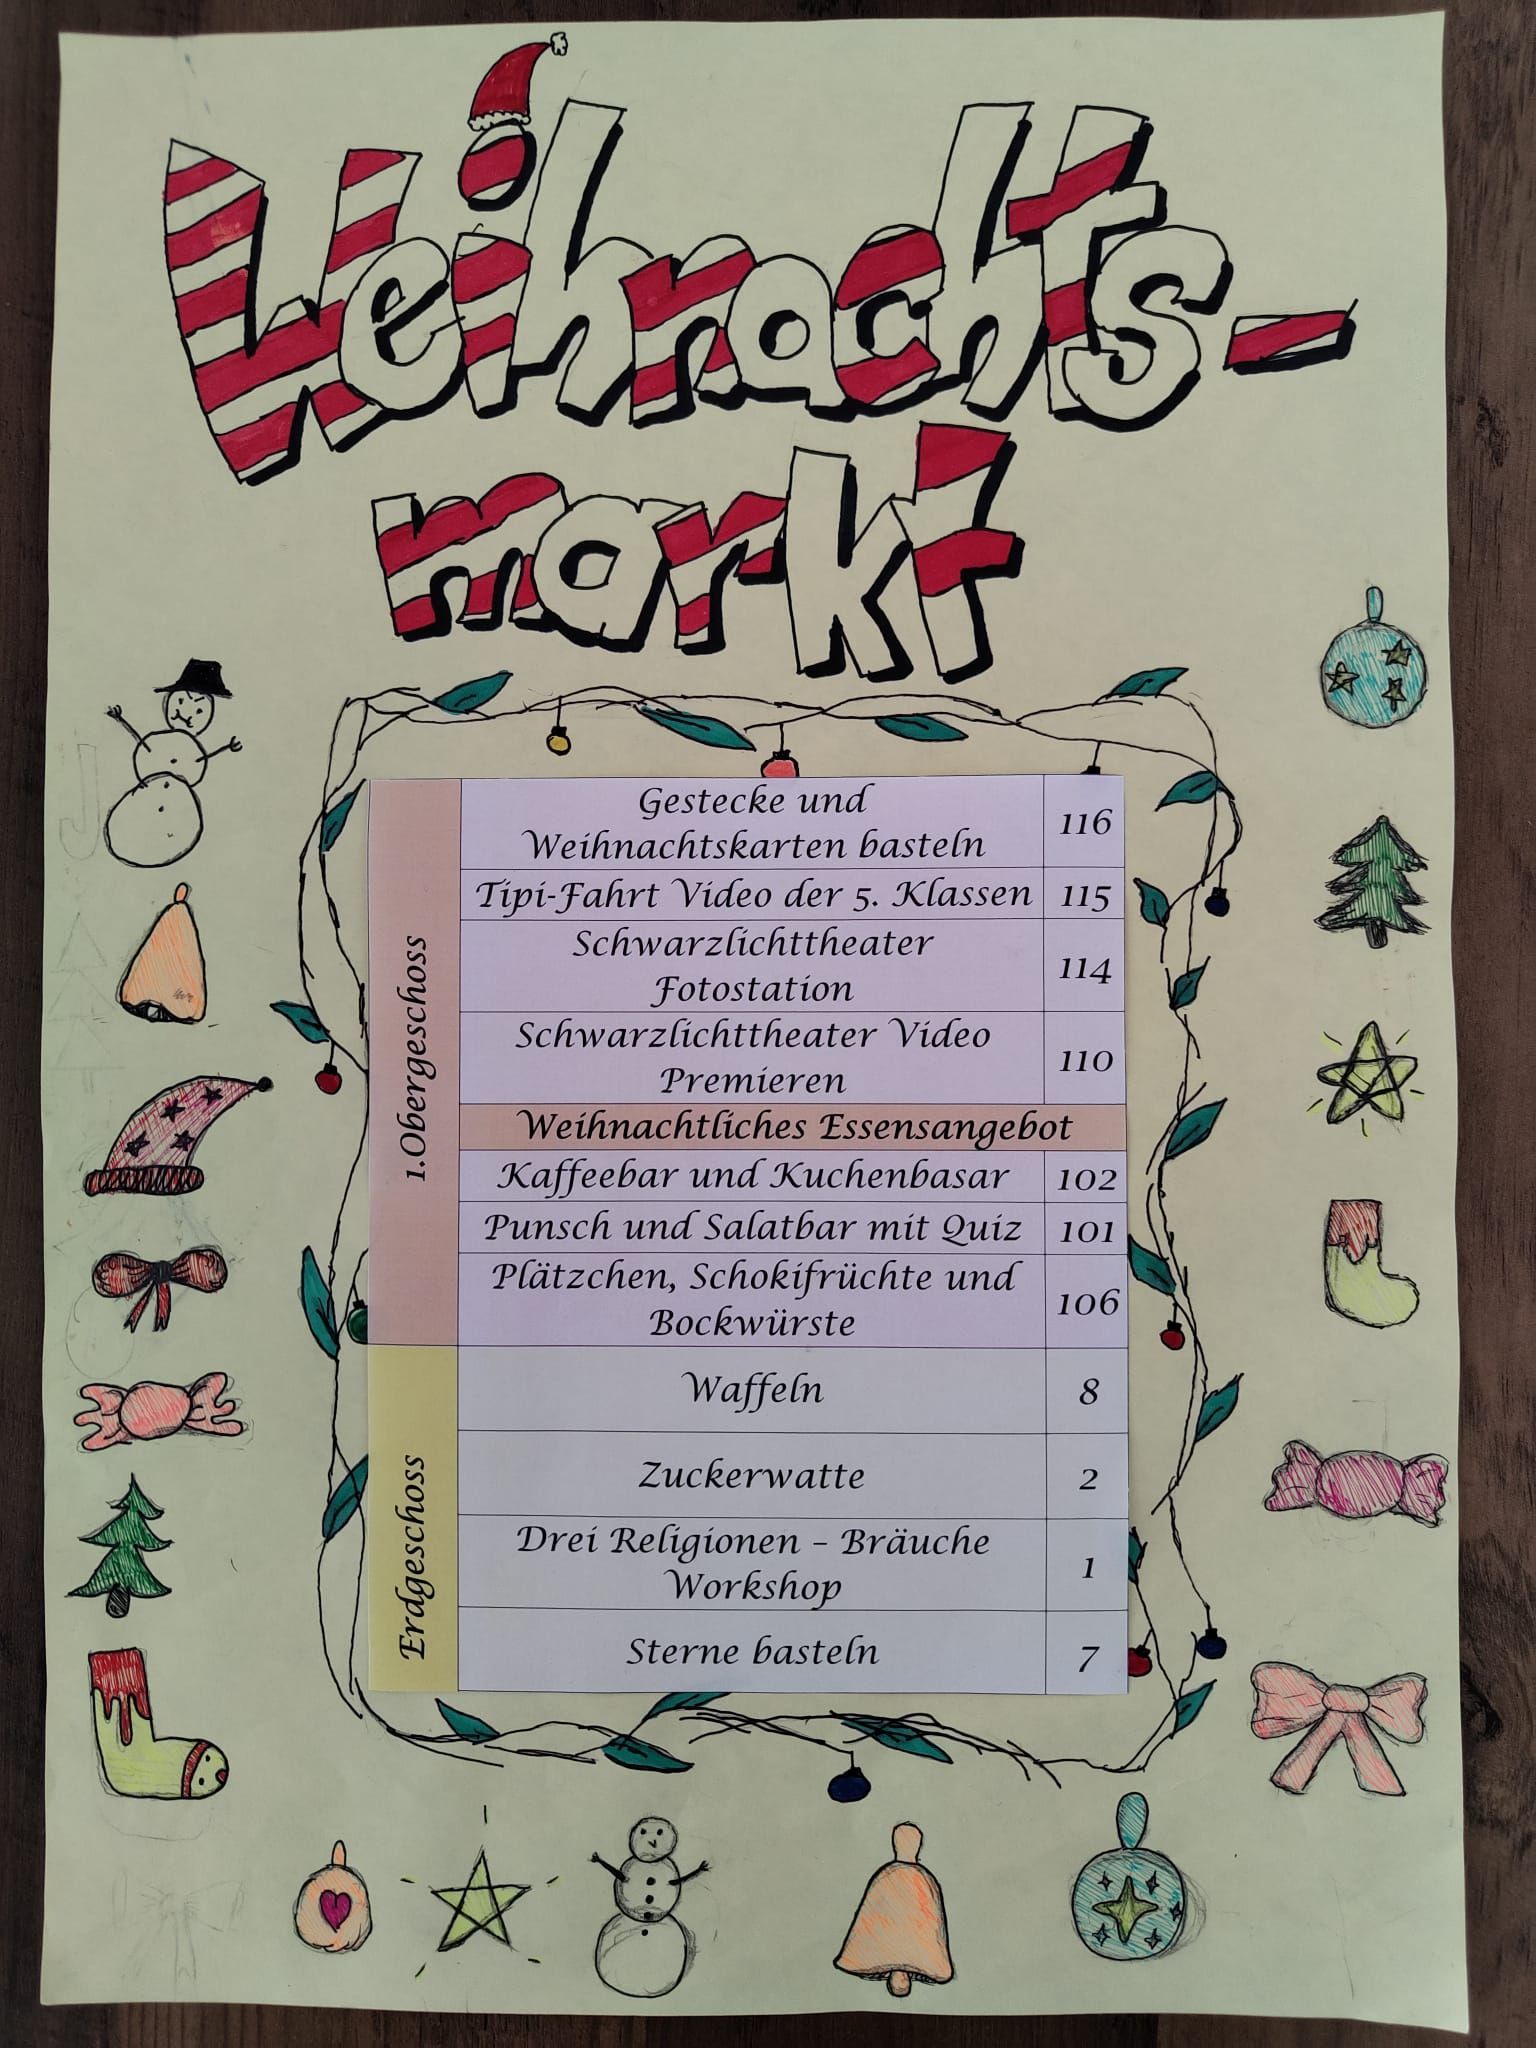 Weihnachts-
markt
1.Obergeschoss
Gestecke und
Weihnachtskarten basteln 116
Tipi-Fahrt Video der 5. Klassen 115
Schwarzlichttheater
Fotostation 114
Schwarzlichttheater Video
Premieren 110
Weihnachtliches Essensangebot
Kaffeebar und Kuchenbasar 102
Punsch und Salatbar mit Quiz 101
Plätzchen, Schokifrüchte und
Bockwürste 106
Erdgeschoss
Waffeln 8
Zuckerwatte 2
Drei Religionen – Bräuche
Workshop 1
Sterne basteln 7